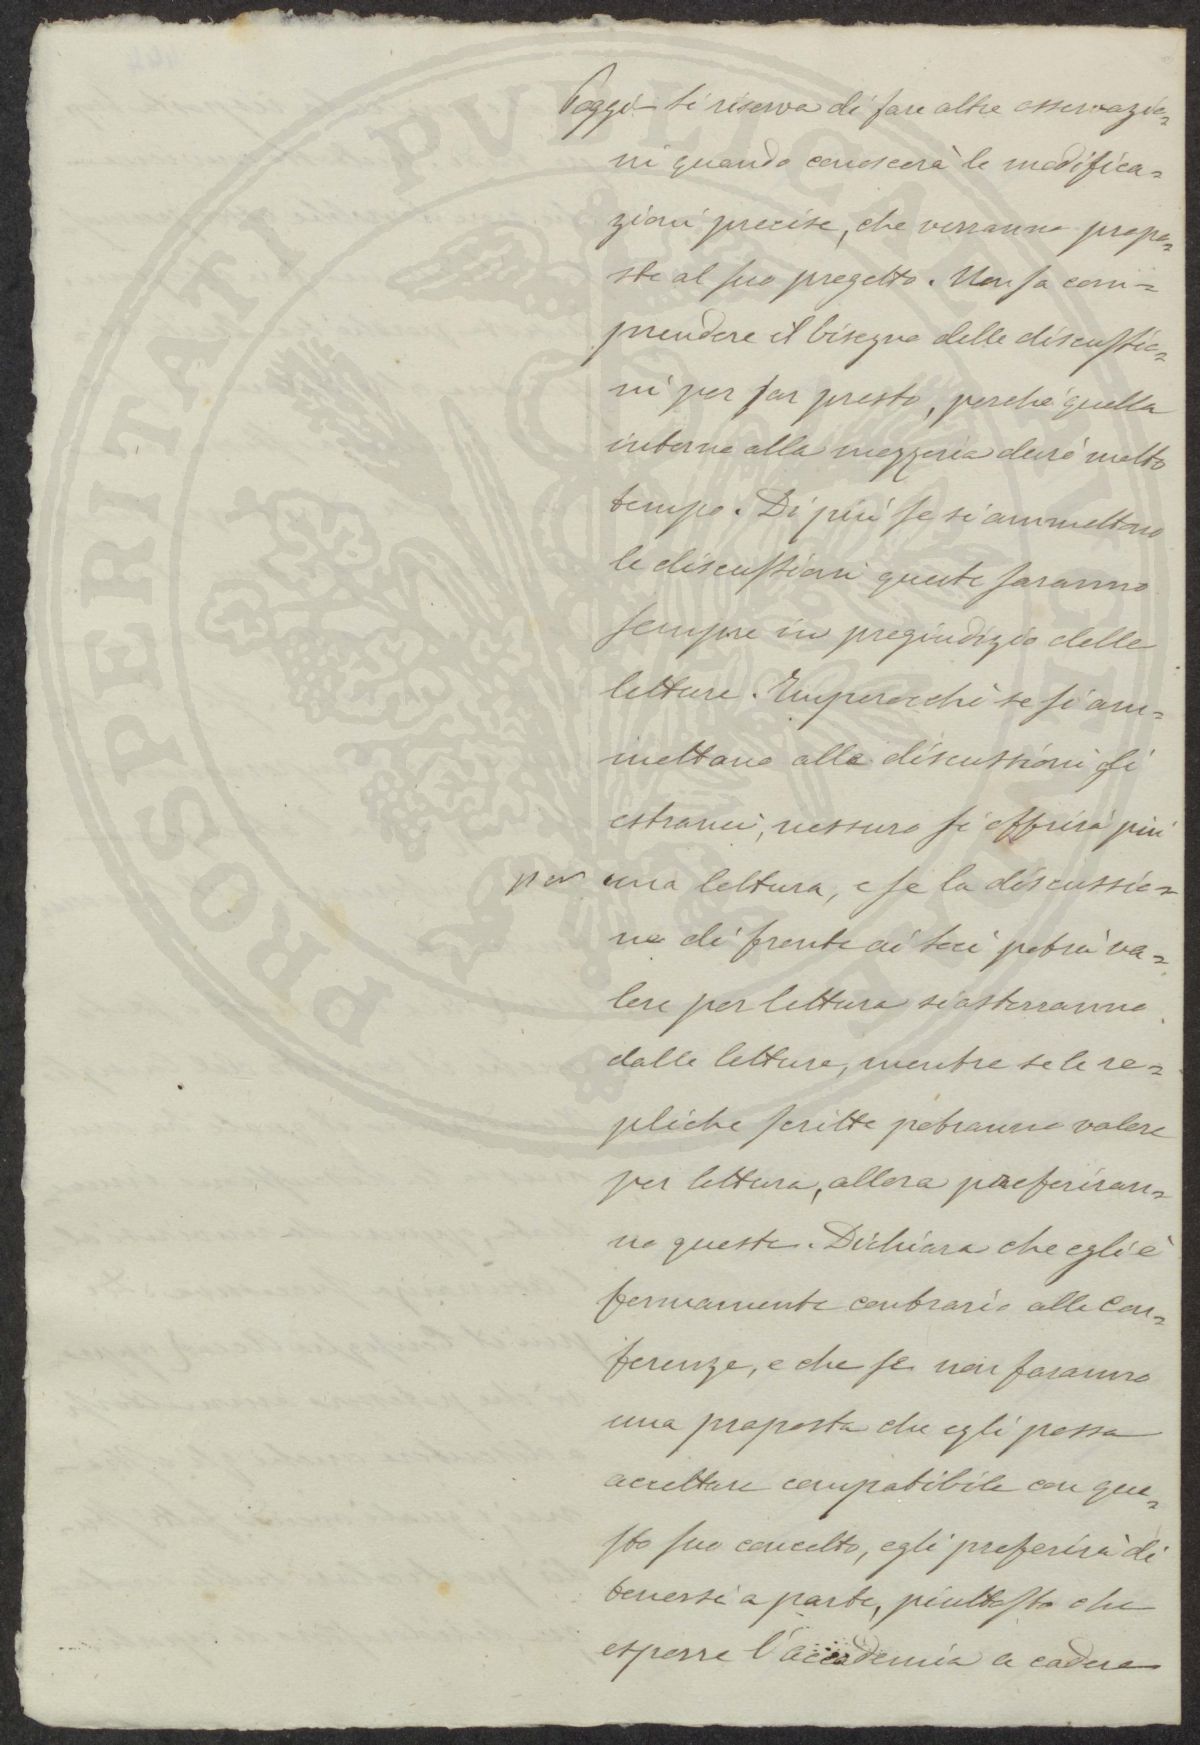 Poggi - si riserva di fare altre osservazio=
ni quando conoscerà le modifica=
zioni precise, che verranno propo=
ste al suo progetto. Non sa com=
prendere il bisogno delle discussio=
ni per far presto, perché quella
intorno alla mezzeria durò molto
tempo. Di più se si ammettono
le discussioni queste saranno
sempre in pregiudizio delle
letture. Imperocchè se si am=
mettano alle discussioni gli
estranei, nessuno si offrirà più
per una lettura, e se la discussio=
ne di fronte ai soci potrà va=
lere per lettura si asterranno
dalle letture, mentre se le re=
pliche scritte potranno valere
per lettura, allora preferiran=
no queste. Dichiara che egli è
fermamente contrario alle Con=
ferenze, e che se non faranno
una proposta che egli possa
accettare compatibile con que=
sto suo concetto, egli preferirà di
tenersi a parte, piuttosto che
esporre l'accademia a cadere
PROSPERITATI PVBLICAE